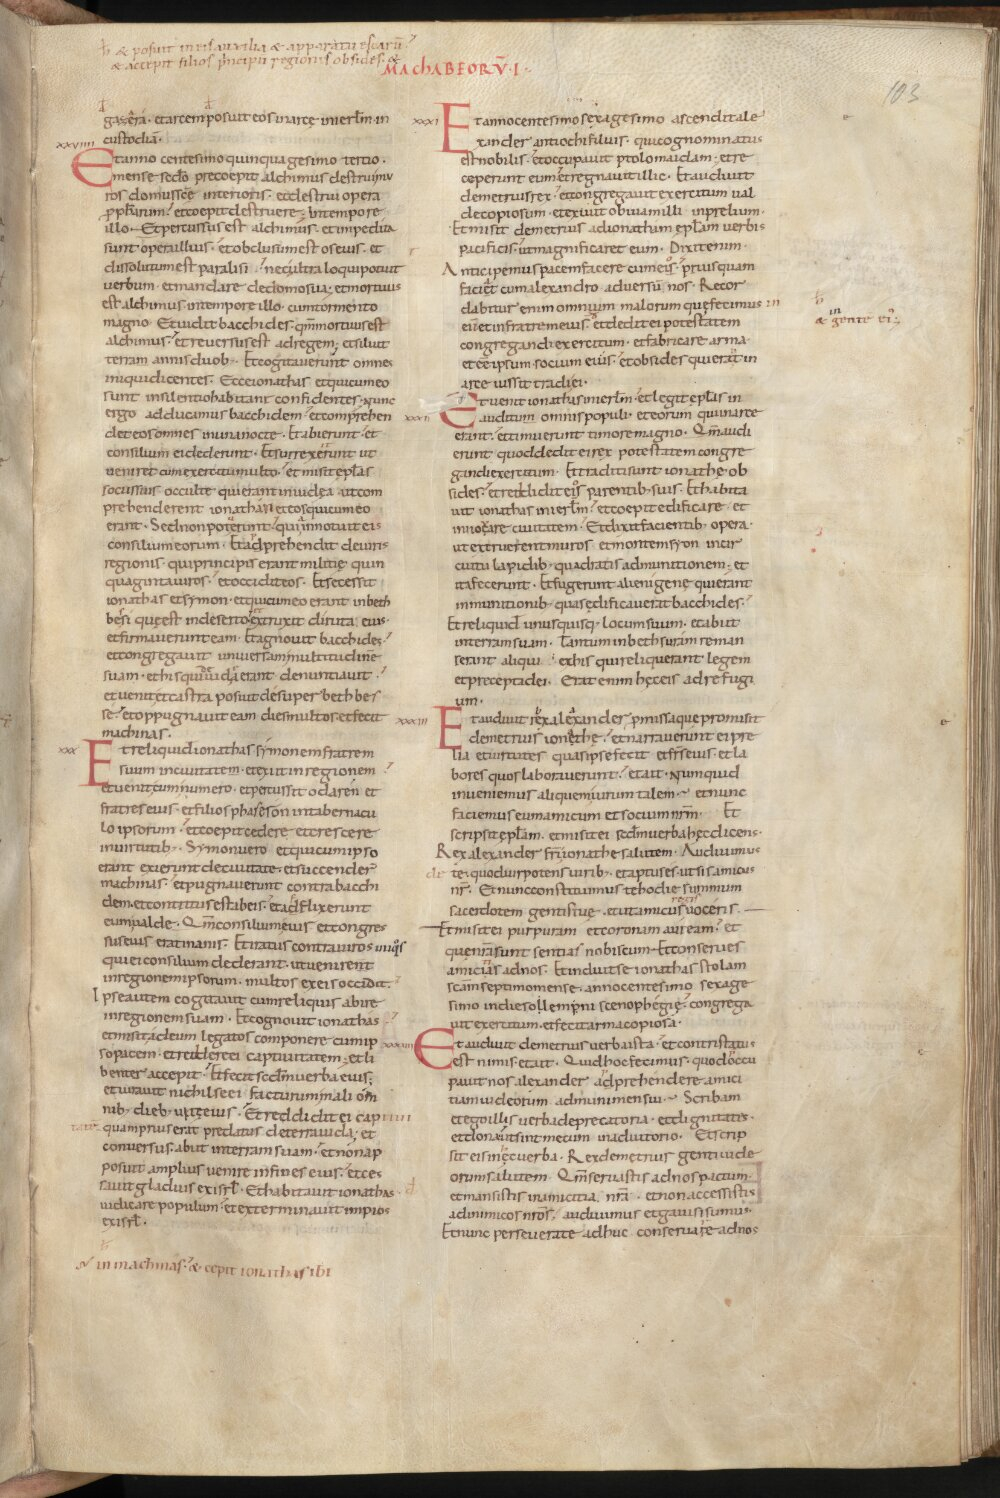 & posuit in eis auxilia & apparatū escarū
& accepit filios principū regionis obsides &
MACHABEORV̄ · I ·
103
gazerā · et arcem posuit eos in arce in ierlm in
custodiā ·
xxviiii
Et anno centesimo quinquagesimo tertio ·
mense scdo precoepit alchimus destrui mu
ros domus scē interioris · et destrui opera
pphetarum · et coepit destruere · In tempore
illo · Et percussus est alchimus · et impedita
sunt opera illius · et obclusum est os eius · et
dissolutum est paralisi · nec ultra loqui potuit
verbum · et mandare de domo sua · et mortuus
est alchimus in tempore illo · cum tormento
magno · Et vidit bacchides qm mortuus est
alchimus · et reversus est ad regem · et siluit
terram annis duob · Et cogitaverunt omnes
iniqui dicentes · Ecce ionathas et qui cum eo
sunt in silentio habitant confidentes · Nunc
ergo adducamus bacchidem · et comprehen
det eos omnes in una nocte · Et abierunt · et
consilium ei dederunt · Et surrexerunt ut
veniret cum exercitu multo · et misit eplas
socus suis occulte qui erant in iudea · ut com
prehenderent ionathan et eos qui cum eo
erant · Sed non poterunt · quia innotuit eis
consilium eorum · Et adprehendit de viris
regionis · qui principis erant militie quin
quaginta viros · et occidit eos · Et secessit
ionathas et symon · et qui cum eo erant in beth
besi que est in deserto et extruxit diruta eius ·
et firmaverunt eam · Et agnovit bacchides ·
et congregavit universam multitudinē
suam · et his qui iuda erant denuntiavit
et venit et castra posuit desuper beth bes
se · et oppugnavit eam dies multos · et fecit
machinas ·
xxx
Et reliquid ionathas symonem fratrem
suum in civitatem · et exiit in regionem
et venit cum numero · et percussit odaren et
fratres eius · et filios phaseson in tabernacu
lo ipsorum · et coepit cedere et crescere
in virtutib · Symon vero et qui cum ipso
erant exierunt de civitate · et succender
machinas · et pugnaverunt contra bacchi
dem · et contritus est ab eis · et adflixerunt
eum valde · Qm consilium eius et congres
sus eius erat inanis · Et iratus contra viros iniqos
qui ei consilium dederant · ut venirent
in regionem ipsorum · multos ex eis occidit ·
Ipse autem cogitavit cum reliquis abire
in regionem suam · Et cognovit ionathas
et misit ad eum legatos componere cum ip
so pacem · et reddere ei captivitatem · et li
benter accepit · Et fecit scdm verba eius ·
et iuravit nichil se ei facturum mali om
nib dieb vite eius · Et reddidit ei cap
quam prius erat predatus de terra iuda · et
conversus abiit in terram suam · et non ap
posuit amplius venire in fines eius · et ces
savit gladius ex isrl · Et habitavit ionathas
iudicare populum · et exterminavit impios
ex isrl ·
in machmas · & cepit ionathas ibi
xxxi
Et anno centesimo sexagesimo ascendit ale
xander antiochi filius · qui cognominatus
est nobilis · et occupavit ptolomaidam · et re
ceperunt eum et regnavit illic · Et audivit
demetrius rex · et congregavit exercitum val
de copiosum · et exivit obviam illi in prelium ·
Et misit demetrius ad ionathan eplam verbis
pacificis · ut magnificaret eum · Dixit enim
Anticipemus pacem facere cum eis · priusquam
faciet cum alexandro adversum nos · Recor
dabitur enim omnium malorum que fecimus in
eū et in fratrem eius · et dedit ei potestatem
congregandi exercitum · et fabricare arma ·
et eē ipsum socium eius · et obsides qui erant in
arce iussit tradi ei ·
& in gente ei
xxxii
Et venit ionathas in ierlm · et legit eplas in
auditum omnis populi · et eorum qui in arce
erant · et timuerunt timore magno · Qm audi
erunt quod dedit ei rex potestatem congre
gandi exercitum · Et traditi sunt ionathe ob
sides · et reddidit eos parentib suis · Et habita
vit ionathas in ierlm · et coepit edificare · et
innovare civitatem · Et dixit facientib opera ·
ut extruerent muros · et montem syon in cir
cuitu lapidib quadratis ad munitionem · et
ita fecerunt · Et fugerunt alienigene qui erant
in munitionib quas edificaverat bacchides ·
Et reliquid unusquisq locum suum · et abiit
in terram suam · Tantum in bethsuram reman
serant aliqui · ex his qui reliquerant legem
et precepta dei · Erat enim hec eis ad refugi
um ·
xxxiii
Et audivit rex alexander pmissa que promisit
demetrius ionathe · et narraverunt ei pre
lia et virtutes quas ipse fecit et frs eius · et la
bores quos laboraverunt · et ait · Numquid
inveniemus aliquem virum talem · et nunc
faciemus eum amicum et socium nrm · Et
scripsit eplam · et misit ei scdm verba hec dicens ·
Rex alexander fri ionathe salutem · Audivimus
de te · quod vir potens virib · et aptus es ut sis amicus
nr · Et nunc constituimus te hodie summum
sacerdotem gentis tue · et ut amicus regis voceris ·
Et misit ei purpuram et coronam auream · et
que nra sunt sentias nobiscum · Et conserves
amicitias ad nos · Et induit se ionathas stolam
scam septimo mense · anno centesimo sexage
simo in die sollempni scenophegie · congrega
vit exercitum · et fecit arma copiosa ·
xxxiiii
Et audivit demetrius verba ista · et contristatus
est nimis · et ait · Quid hoc fecimus · quod occu
pavit nos alexander adprehendere amici
tiam iudeorum ad munimen sui · Scribam
et ego illis verba deprecatoria · et dignitates ·
et dona ut sint mecum in adiutorio · Et scrip
sit eis in hec verba · Rex demetrius genti iude
orum salutem · Qm servastis ad nos pactum
et mansistis in amicitia nra · et non accessistis
ad inimicos nros · audivimus et gavisi sumus ·
Et nunc perseverate adhuc conservare ad nos